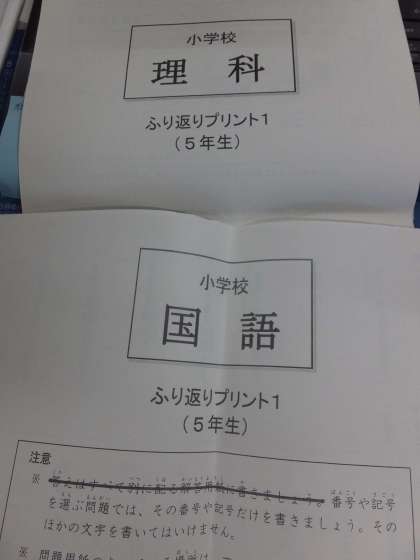 小学校
理 科
ふり返りプリント1
(5年生)
小学校
国 語
ふり返りプリント1
(5年生)
注意
※ 答えはすべて別に配る解答用紙に書きましょう。番号や記号
を選ぶ問題では、その番号や記号だけを書きましょう。その
ほかの文字を書いてはいけません。
※ 問題用紙の